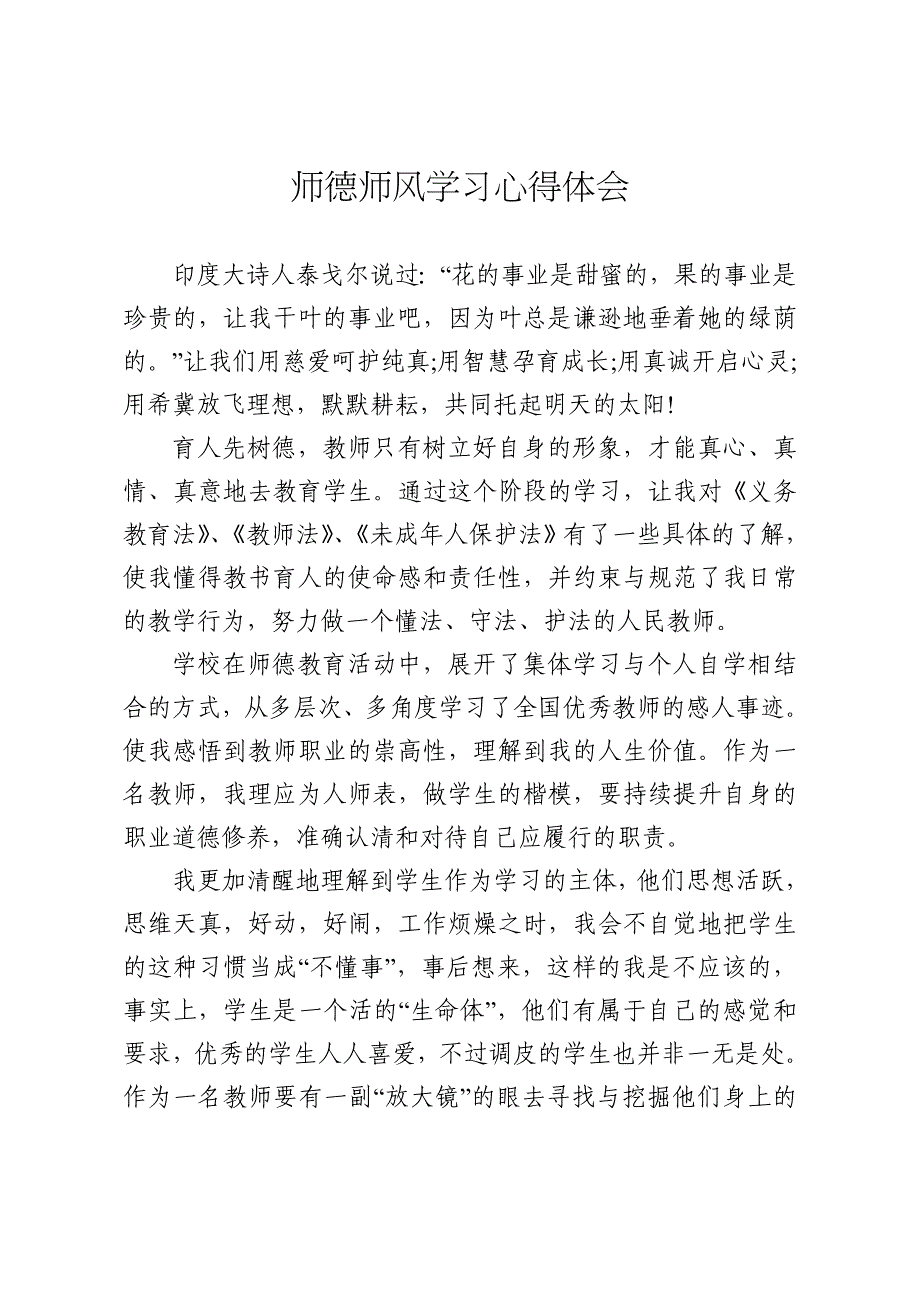 师德师风学习心得体会
印度大诗人泰戈尔说过: “花的事业是甜蜜的，果的事业是
珍贵的，让我干叶的事业吧，因为叶总是谦逊地垂着她的绿荫
的。”让我们用慈爱呵护纯真;用智慧孕育成长;用真诚开启心灵;
用希冀放飞理想，默默耕耘，共同托起明天的太阳!
育人先树德，教师只有树立好自身的形象，才能真心、真
情、真意地去教育学生。通过这个阶段的学习，让我对《义务
教育法》、《教师法》、《未成年人保护法》有了一些具体的了解，
使我懂得教书育人的使命感和责任性，并约束与规范了我日常
的教学行为，努力做一个懂法、守法、护法的人民教师。
学校在师德教育活动中，展开了集体学习与个人自学相结
合的方式，从多层次、多角度学习了全国优秀教师的感人事迹。
使我感悟到教师职业的崇高性，理解到我的人生价值。作为一
名教师，我理应为人师表，做学生的楷模，要持续提升自身的
职业道德修养，准确认清和对待自己应履行的职责。
我更加清醒地理解到学生作为学习的主体，他们思想活跃，
思维天真，好动，好闹，工作烦燥之时，我会不自觉地把学生
的这种习惯当成“不懂事”，事后想来，这样的我是不应该的，
事实上，学生是一个活的“生命体”，他们有属于自己的感觉和
要求，优秀的学生人人喜爱，不过调皮的学生也并非一无是处。
作为一名教师要有一副“放大镜”的眼去寻找与挖掘他们身上的